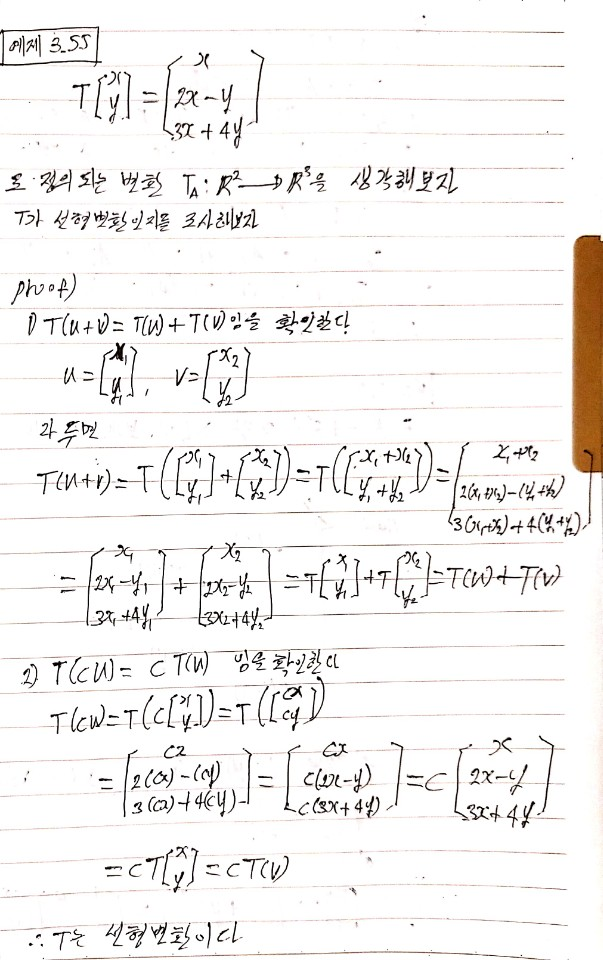 예제 3.55
T[x y] = [x 2x-y 3x+4y]
로 정의 되는 변환 T_A: R² → R³을 생각해보자
T가 선형변환인지를 조사해보자
proof)
1) T(u+v) = T(u) + T(v)임을 확인한다
u = [x₁ y₁], v = [x₂ y₂]
라 두면
T(u+v) = T([x₁ y₁] + [x₂ y₂]) = T([x₁+x₂ y₁+y₂]) = [x₁+x₂ 2(x₁+x₂)-(y₁+y₂) 3(x₁+x₂)+4(y₁+y₂)]
= [x₁ 2x₁-y₁ 3x₁+4y₁] + [x₂ 2x₂-y₂ 3x₂+4y₂] = T[x y₁] + T[x₂ y₂] = T(u) + T(v)
2) T(cu) = cT(u) 임을 확인한다
T(cu) = T(c[x y]) = T([cx cy])
= [cx 2(cx)-(cy) 3(cx)+4(cy)] = [cx c(2x-y) c(3x+4y)] = c[x 2x-y 3x+4y]
= cT[x y] = cT(v)
∴ T는 선형변환이다